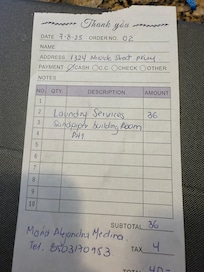 Thank you
DATE 9-8-25 ORDER NO. 02
NAME
ADDRESS 1324 Street
PAYMENT CASH C.C CHECK OTHER
NOTES
NO. QTY. DESCRIPTION AMOUNT
1
2 Laundry Services 36
3 Singapore building Room
4 PH1
5
6
7
8
9
10
SUBTOTAL 36
Maria Alejandra Medina
TAX 4
Tel.
TOTAL 40